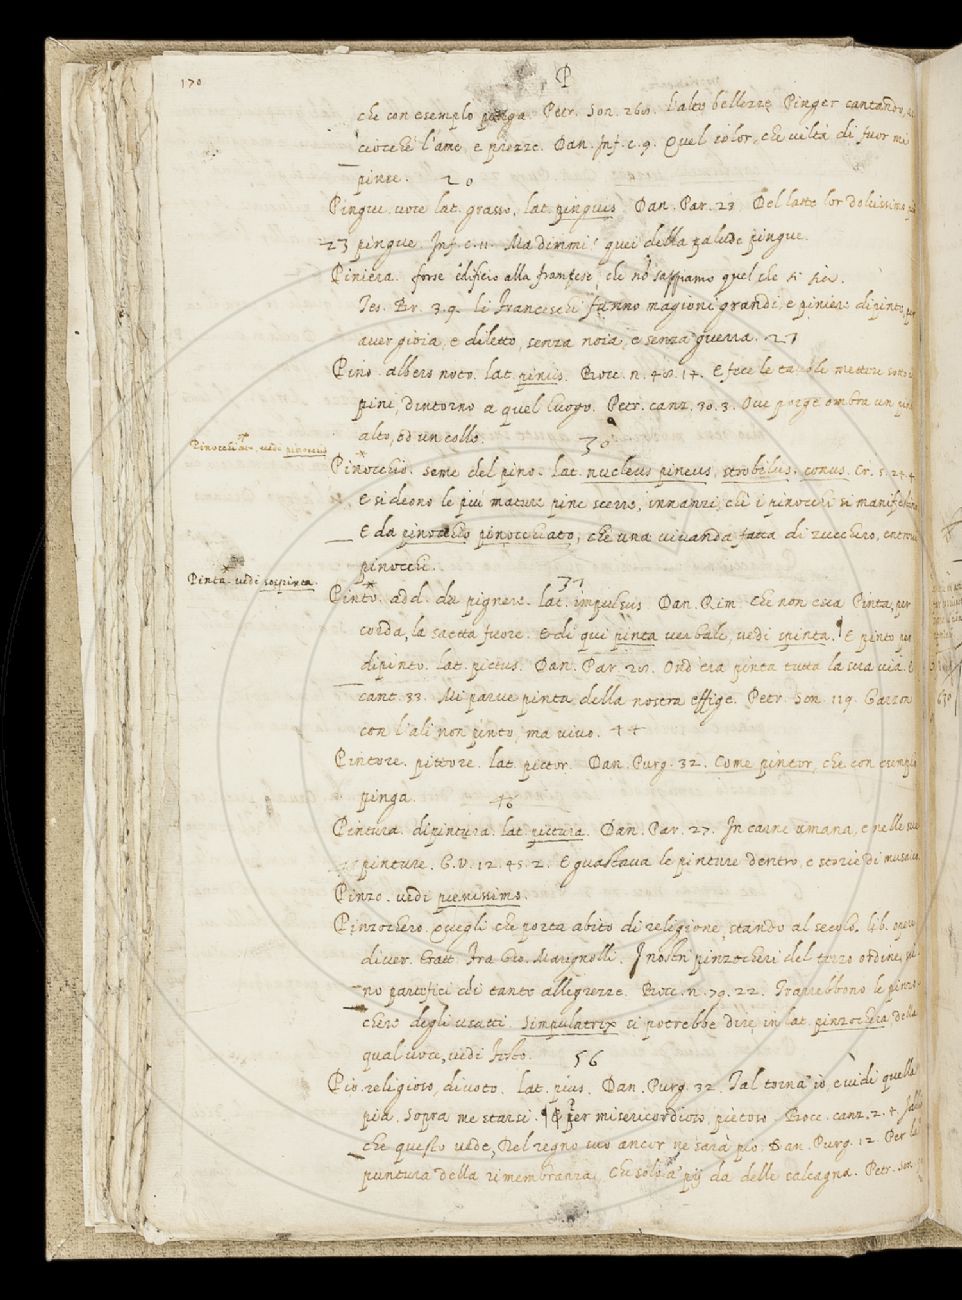 170
P
che con esemplo pinga. Petr. Son. 260. L'alte bellezze Pinger cantando,
cioche l'ame, e prezze. Dan. Inf. c. 9. Quel color, che viltà di fuor mi
pinse. 20
Pingue. voce lat. grasso. lat. pinguis. Dan. Par. 23. Del latte lor dolcissimo
23 pingue. Inf. c. 11. Ma dimmi: quei della palude pingue.
Piniera. forse edificio alla franzese, che nō sappiamo quel che si sia.
Tes. Br. 3. 9. li Franceschi fanno magioni grandi, e piniere dipinte,
aver gioia, e diletto, senza noia, e senza guerra. 27
Pino. albero noto. lat. pinus. Bocc. n. 48. 14. E fece le tavole mettere sotto i
pini, dintorno a quel luogo. Petr. canz. 30. 3. Ove porge ombra un pino
alto, od un colle. 30
Pinocchiato, vedi pinocchio
Pinocchio. seme del pino. lat. nucleus pineus, strobilus. conus. Cr. 5. 24. 4.
E si deono le più mature pine scerre, innanzi, chè i pinocchi si manifestino
E da pinocchio pinocchiato, che una vivanda fatta di zucchero, entrovi
pinocchi.
Pinta. vedi sospinta.
31
Pinto. add. da pignere. lat. impulsus. Dan. Rim. Che non esca Pinta, per
corda, la saetta fuore. E di qui pinta verbale, vedi spinta. E pinto per
dipinto. lat. pictus. Dan. Par. 20. Ond' era pinta tutta la sua via. E
cant. 33. Mi parve pinta della nostra effige. Petr. Son. 119. Garzon
con l'ali non pinto, ma vivo. 44
Pintore. pittore. lat. pictor. Dan. Purg. 32. Come pintor, che con esemplo
pinga. 46
Pintura. dipintura. lat. pictura. Dan. Par. 27. In carne umana, e nelle sue
pinture. G. V. 12. 45. 2. E guastava le pinture dentro, e storie di musaico
Pinzo. vedi pienissimo.
Pinzochero. Quegli che porta abito di religione, stando al secolo. lib. opere
diver. tratt. Fra Gio. Marignolli. I nostri pinzocheri del terzo ordine,
no partefici di tante allegrezze. Bocc. n. 79. 22. Trarrebbono le pinzo-
chere degli usatti. Simpulatrix si potrebbe dire in lat. pinzochera, della
qual voce, vedi Festo. 56
Pio. religioso, divoto. lat. pius. Dan. Purg. 32. Tal torna' io, e vidi quella
pia, Sopra me starsi. E per misericordioso, pietoso. Bocc. canz. 2. 4.
che questo vede, Nel regno suo ancor ne sarà pio. Dan. Purg. 12. Per la
puntura della rimembranza, Che solo a' pij dà delle calcagna. Petr. son.